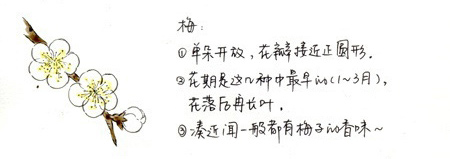 梅:
①单朵开放，花瓣接近正圆形.
②花期是这几种中最早的(1~3月),
花落后再长叶.
③凑近闻一般都有梅子的香味~